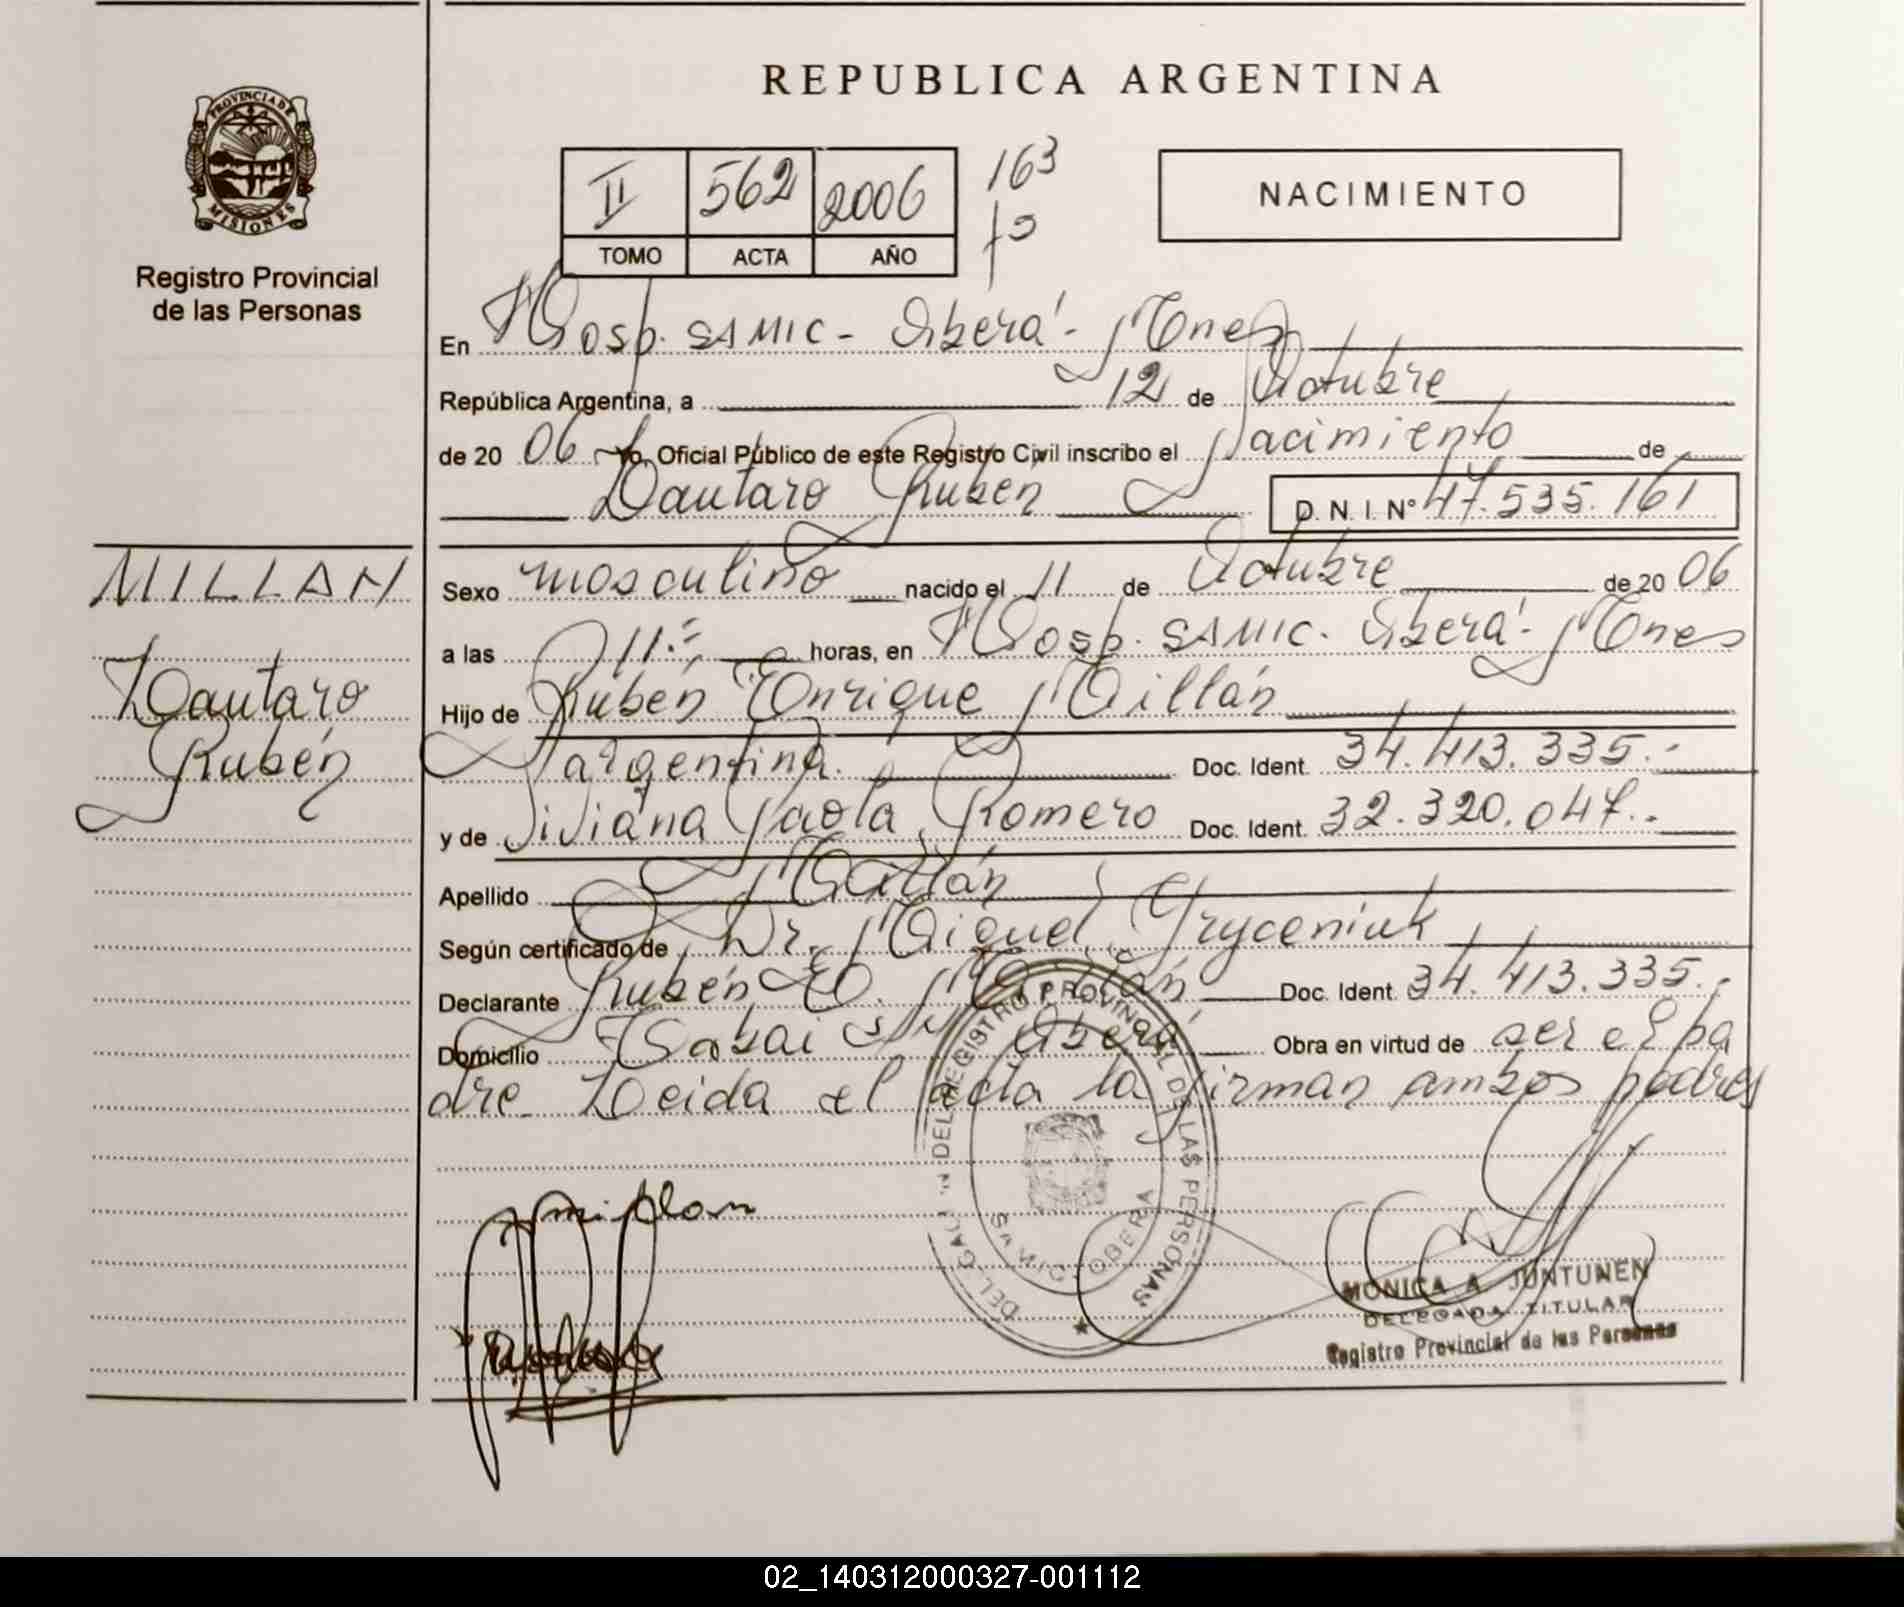 REPUBLICA ARGENTINA
PROVINCIA DE
MISIONES
Registro Provincial
de las Personas
II 562 2006 163
TOMO ACTA AÑO fo
NACIMIENTO
En Hosp. SAMIC - Oberá - Mnes
República Argentina, a 12 de Octubre
de 20 06 Yo, Oficial Público de este Registro Civil inscribo el Nacimiento de
Lautaro Rubén D. N. I. N° 47.535.161
MILLAN
Lautaro
Rubén
Sexo masculino nacido el 11 de Octubre de 20 06
a las 11:= horas, en Hosp. SAMIC. Oberá - Mnes
Hijo de Rubén Enrique Millán
argentina. Doc. Ident. 34.413.335.-
y de Viviana Paola Romero Doc. Ident. 32.320.047.-
Apellido Millán
Según certificado de Dr. Miguel Gryceniuk
Declarante Rubén E. Millán Doc. Ident. 34.413.335.-
Domicilio Oberá Obra en virtud de ser el pa
dre. Leida el acta la firman ambos padres
DELEGACION DEL REGISTRO PROVINCIAL DE LAS PERSONAS
SAMIC - OBERA
MONICA A. JUNTUNEN
DELEGADA TITULAR
Registro Provincial de las Personas
02_140312000327-001112